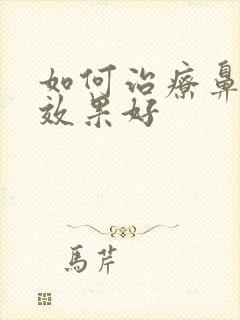 如何治療鼻
效果好
馬芹